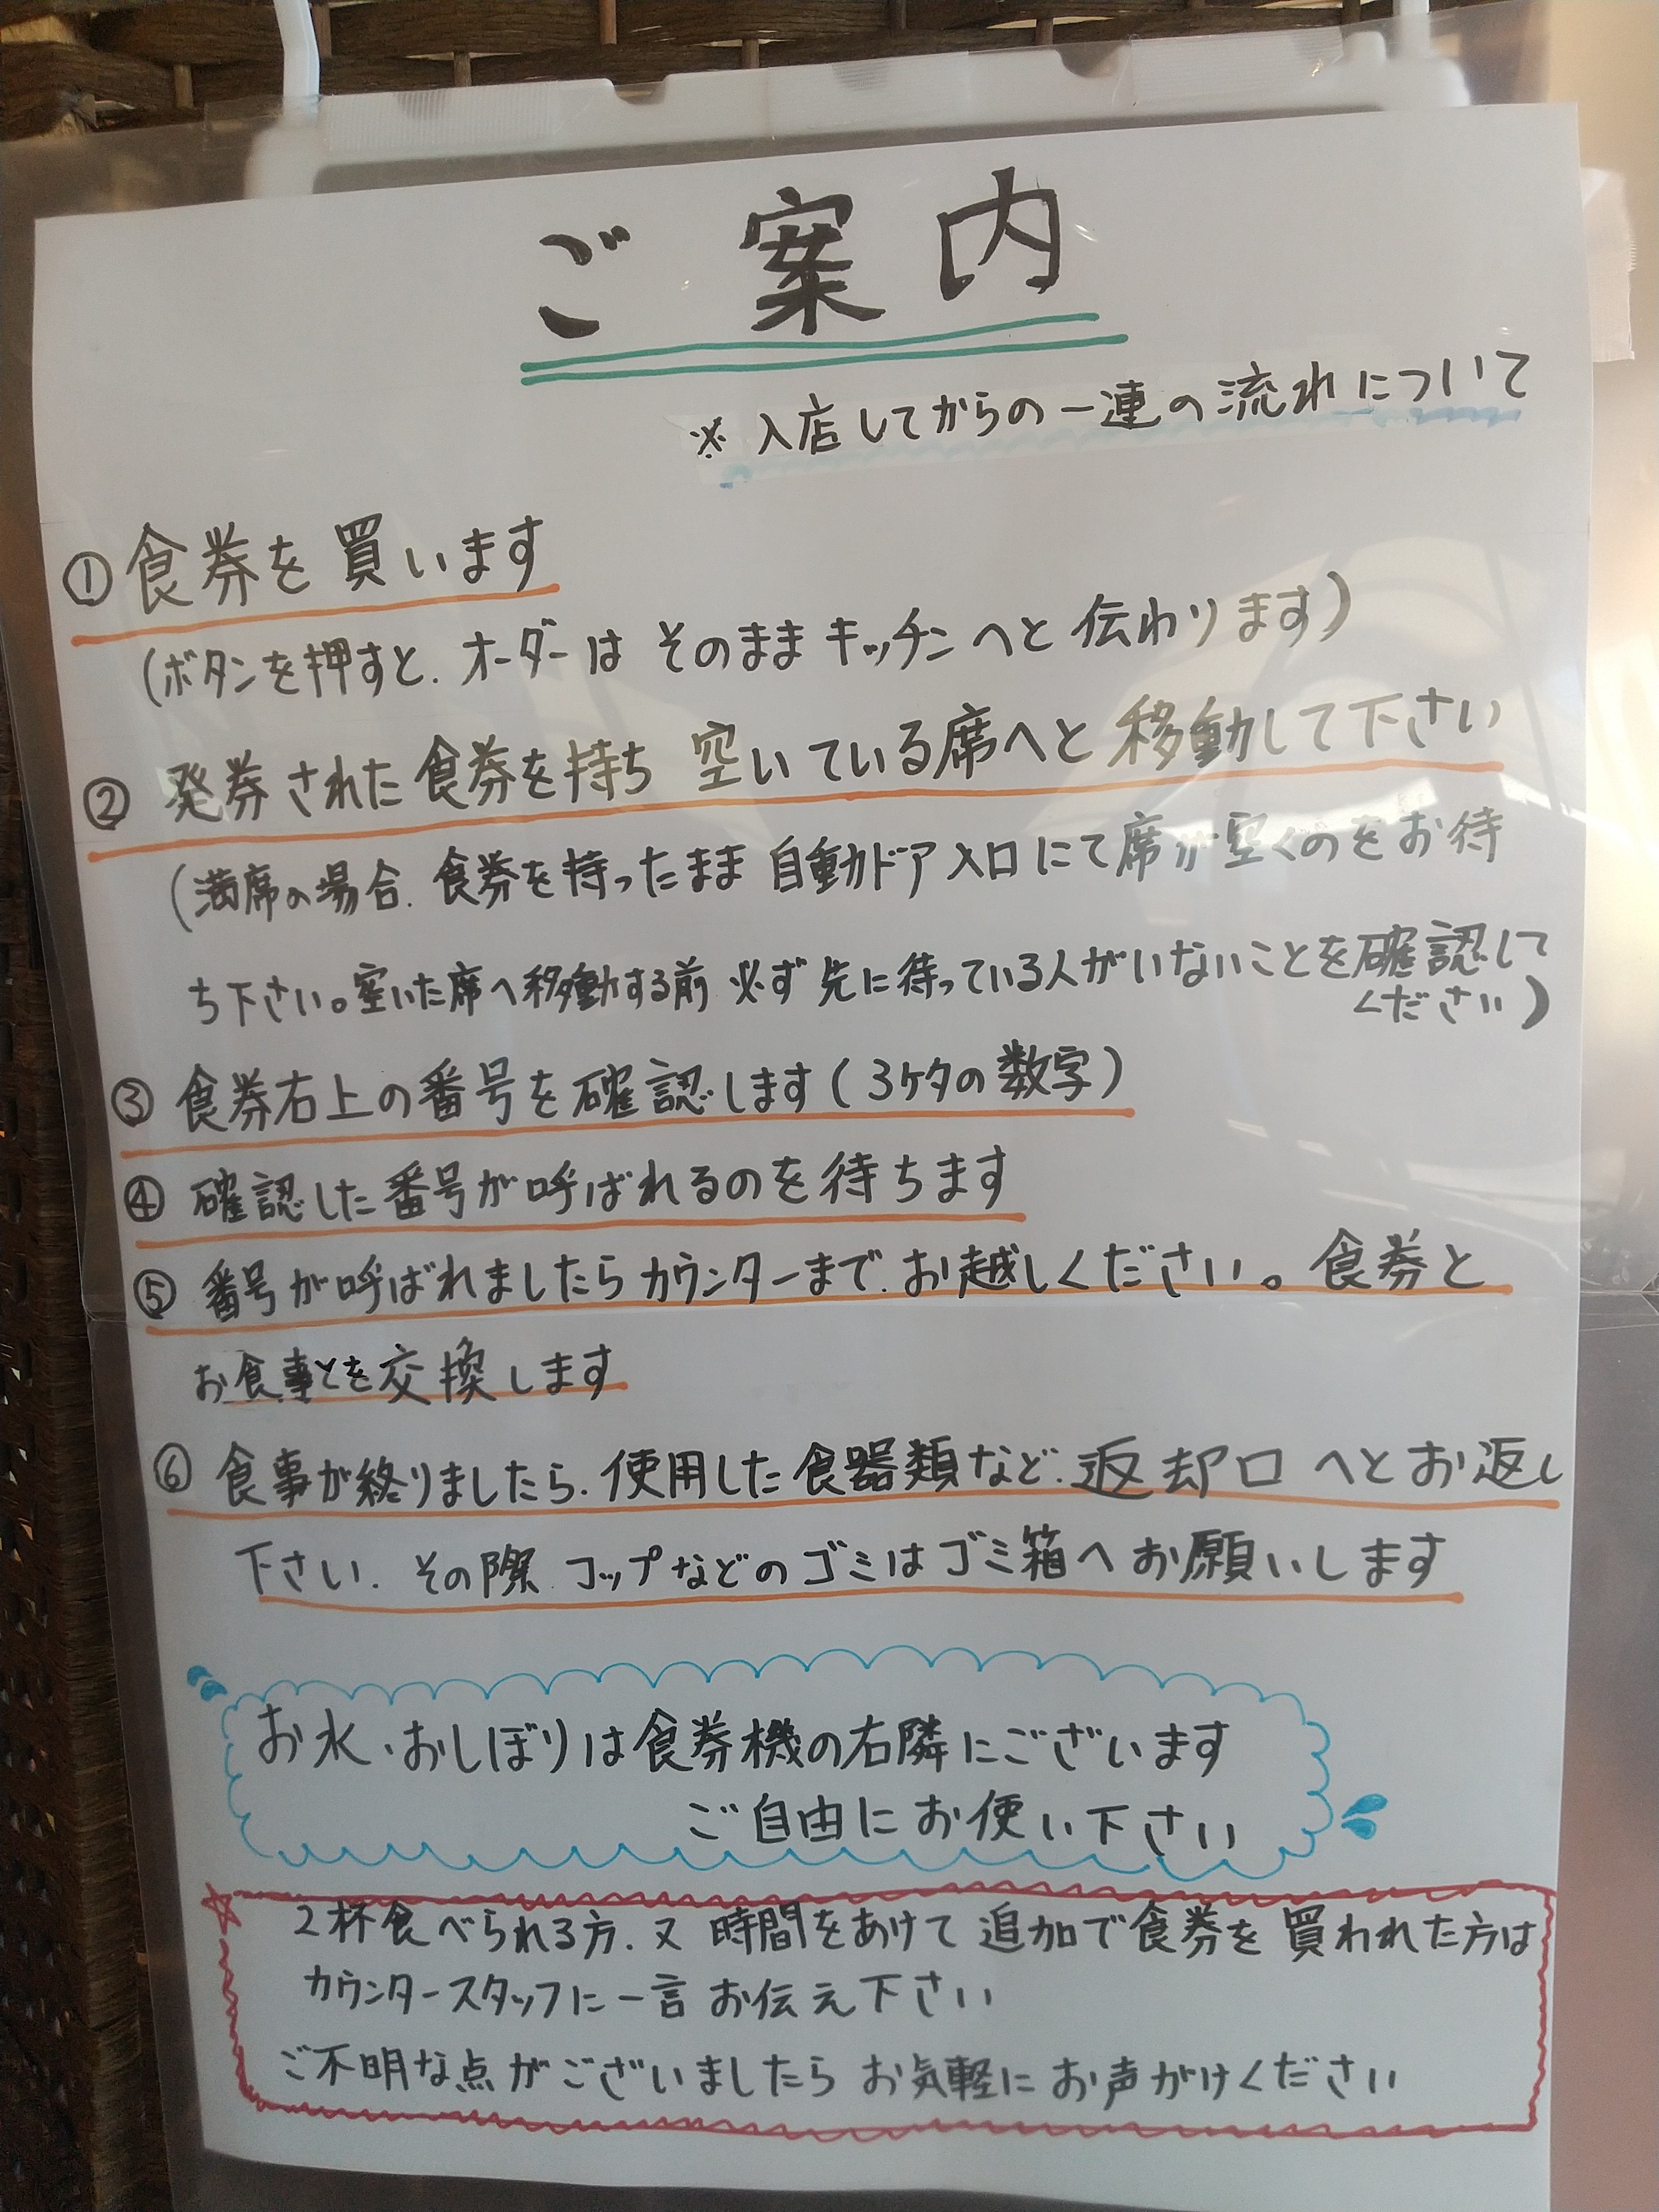 ご案内
※入店してからの一連の流れについて
①食券を買います
(ボタンを押すと、オーダーはそのままキッチンへと伝わります)
②発券された食券を持ち空いている席へと移動して下さい
(満席の場合、食券を持ったまま自動ドア入口にて席が空くのをお待
ち下さい。空いた席へ移動する前必ず先に待っている人がいないことを確認して
ください)
③食券右上の番号を確認します(3ケタの数字)
④確認した番号が呼ばれるのを待ちます
⑤番号が呼ばれましたらカウンターまで、お越しください。食券と
お食事とを交換します
⑥食事が終りましたら、使用した食器類など、返却口へとお返し
下さい、その際コップなどのゴミはゴミ箱へお願いします
お水、おしぼりは食券機の右隣にございます
ご自由にお使い下さい
☆2杯食べられる方、又時間をあけて追加で食券を買われた方は
カウンタースタッフに一言お伝え下さい
ご不明な点がございましたらお気軽にお声がけください